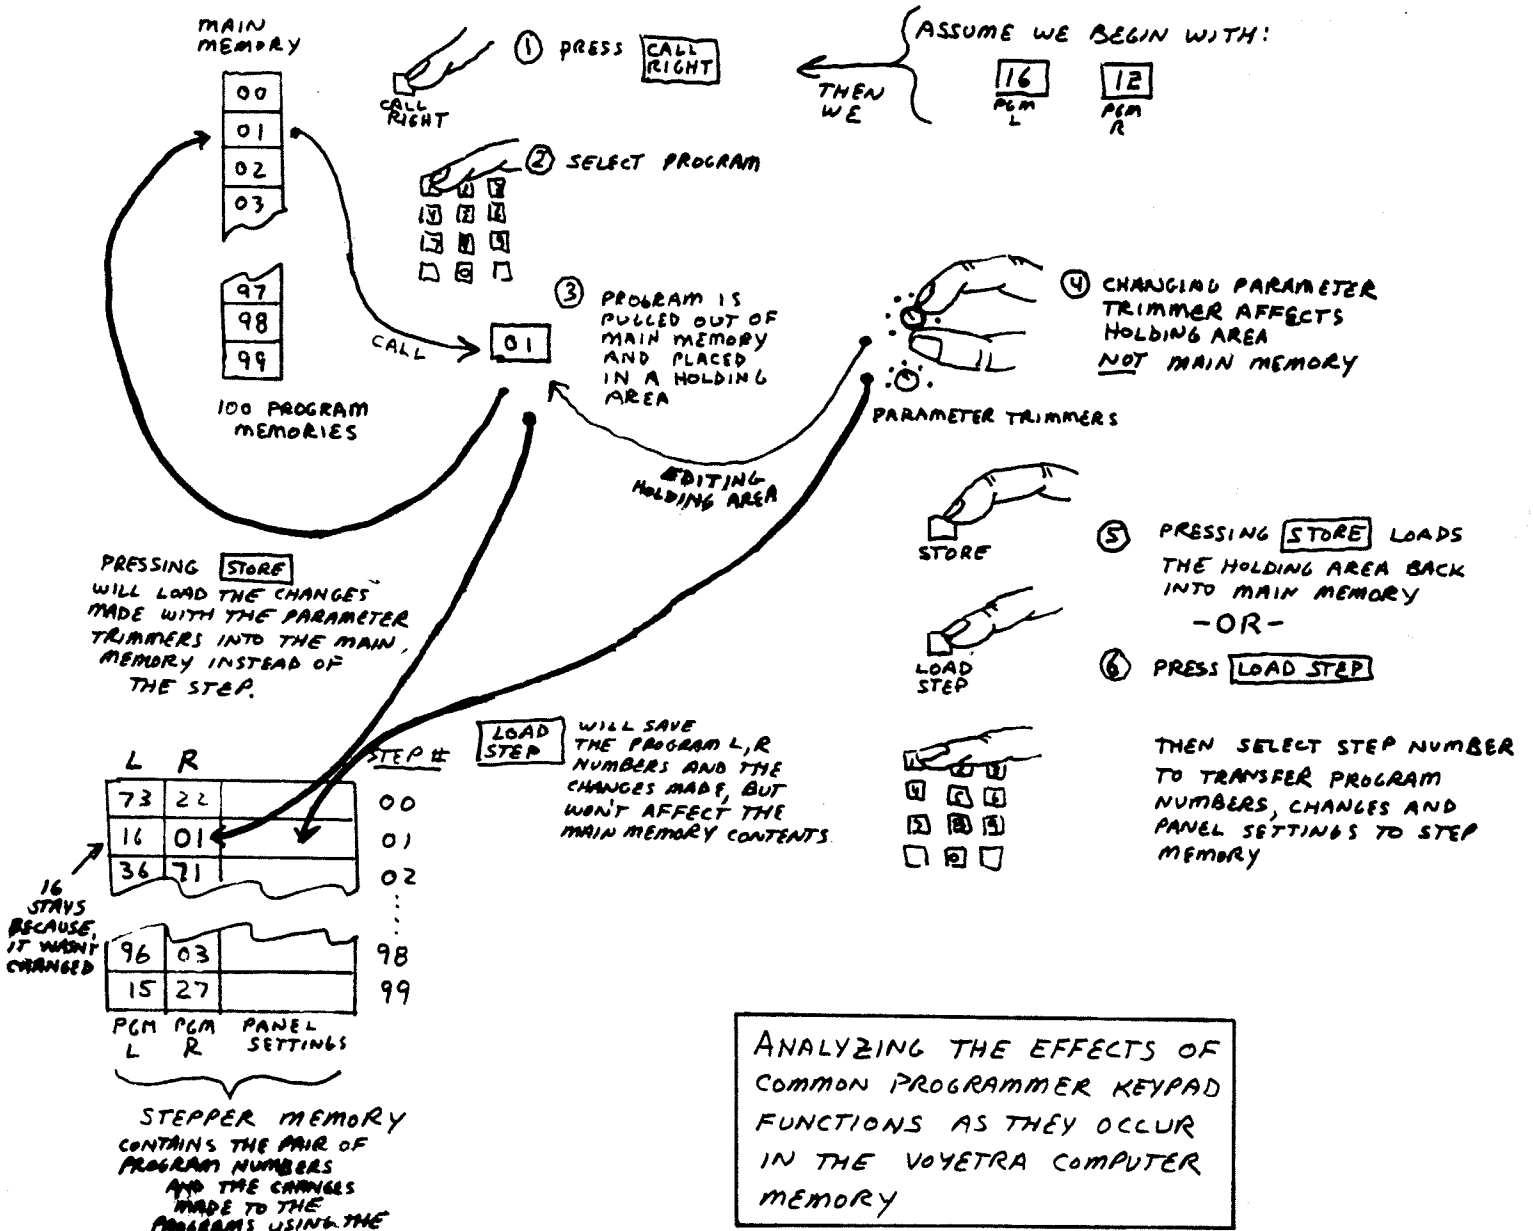 MAIN
MEMORY
00
01
02
03
97
98
99
100 PROGRAM
MEMORIES
CALL
RIGHT
① PRESS CALL
RIGHT
ASSUME WE BEGIN WITH:
16 12
PGM PGM
L R
THEN
WE
② SELECT PROGRAM
0
CALL
01
③ PROGRAM IS
PULLED OUT OF
MAIN MEMORY
AND PLACED
IN A HOLDING
AREA
④ CHANGING PARAMETER
TRIMMER AFFECTS
HOLDING AREA
NOT MAIN MEMORY
PARAMETER TRIMMERS
EDITING
HOLDING AREA
STORE
⑤ PRESSING STORE LOADS
THE HOLDING AREA BACK
INTO MAIN MEMORY
-OR-
LOAD
STEP
⑥ PRESS LOAD STEP
THEN SELECT STEP NUMBER
TO TRANSFER PROGRAM
NUMBERS, CHANGES AND
PANEL SETTINGS TO STEP
MEMORY
PRESSING STORE
WILL LOAD THE CHANGES
MADE WITH THE PARAMETER
TRIMMERS INTO THE MAIN
MEMORY INSTEAD OF
THE STEP.
LOAD
STEP
WILL SAVE
THE PROGRAM L,R
NUMBERS AND THE
CHANGES MADE, BUT
WON'T AFFECT THE
MAIN MEMORY CONTENTS
L R STEP #
73 22 00
16 01 01
36 71 02
96 03 98
15 27 99
PGM PGM PANEL
L R SETTINGS
16
STAYS
BECAUSE,
IT WASN'T
CHANGED
STEPPER MEMORY
CONTAINS THE PAIR OF
PROGRAM NUMBERS
AND THE CHANGES
MADE TO THE
PROGRAMS USING THE
ANALYZING THE EFFECTS OF
COMMON PROGRAMMER KEYPAD
FUNCTIONS AS THEY OCCUR
IN THE VOYETRA COMPUTER
MEMORY